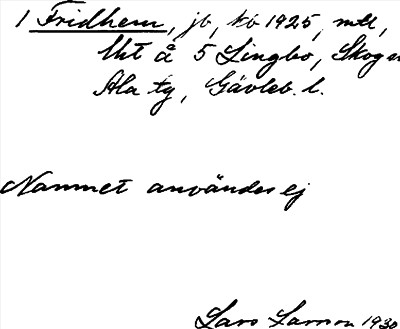 1 Fridhem, jb, kb 1925, mtl,
Uht å 5 Lingbo, Skog s
Ala tg, Gävleb. l.
Namnet användes ej
Lars Larsson 1930